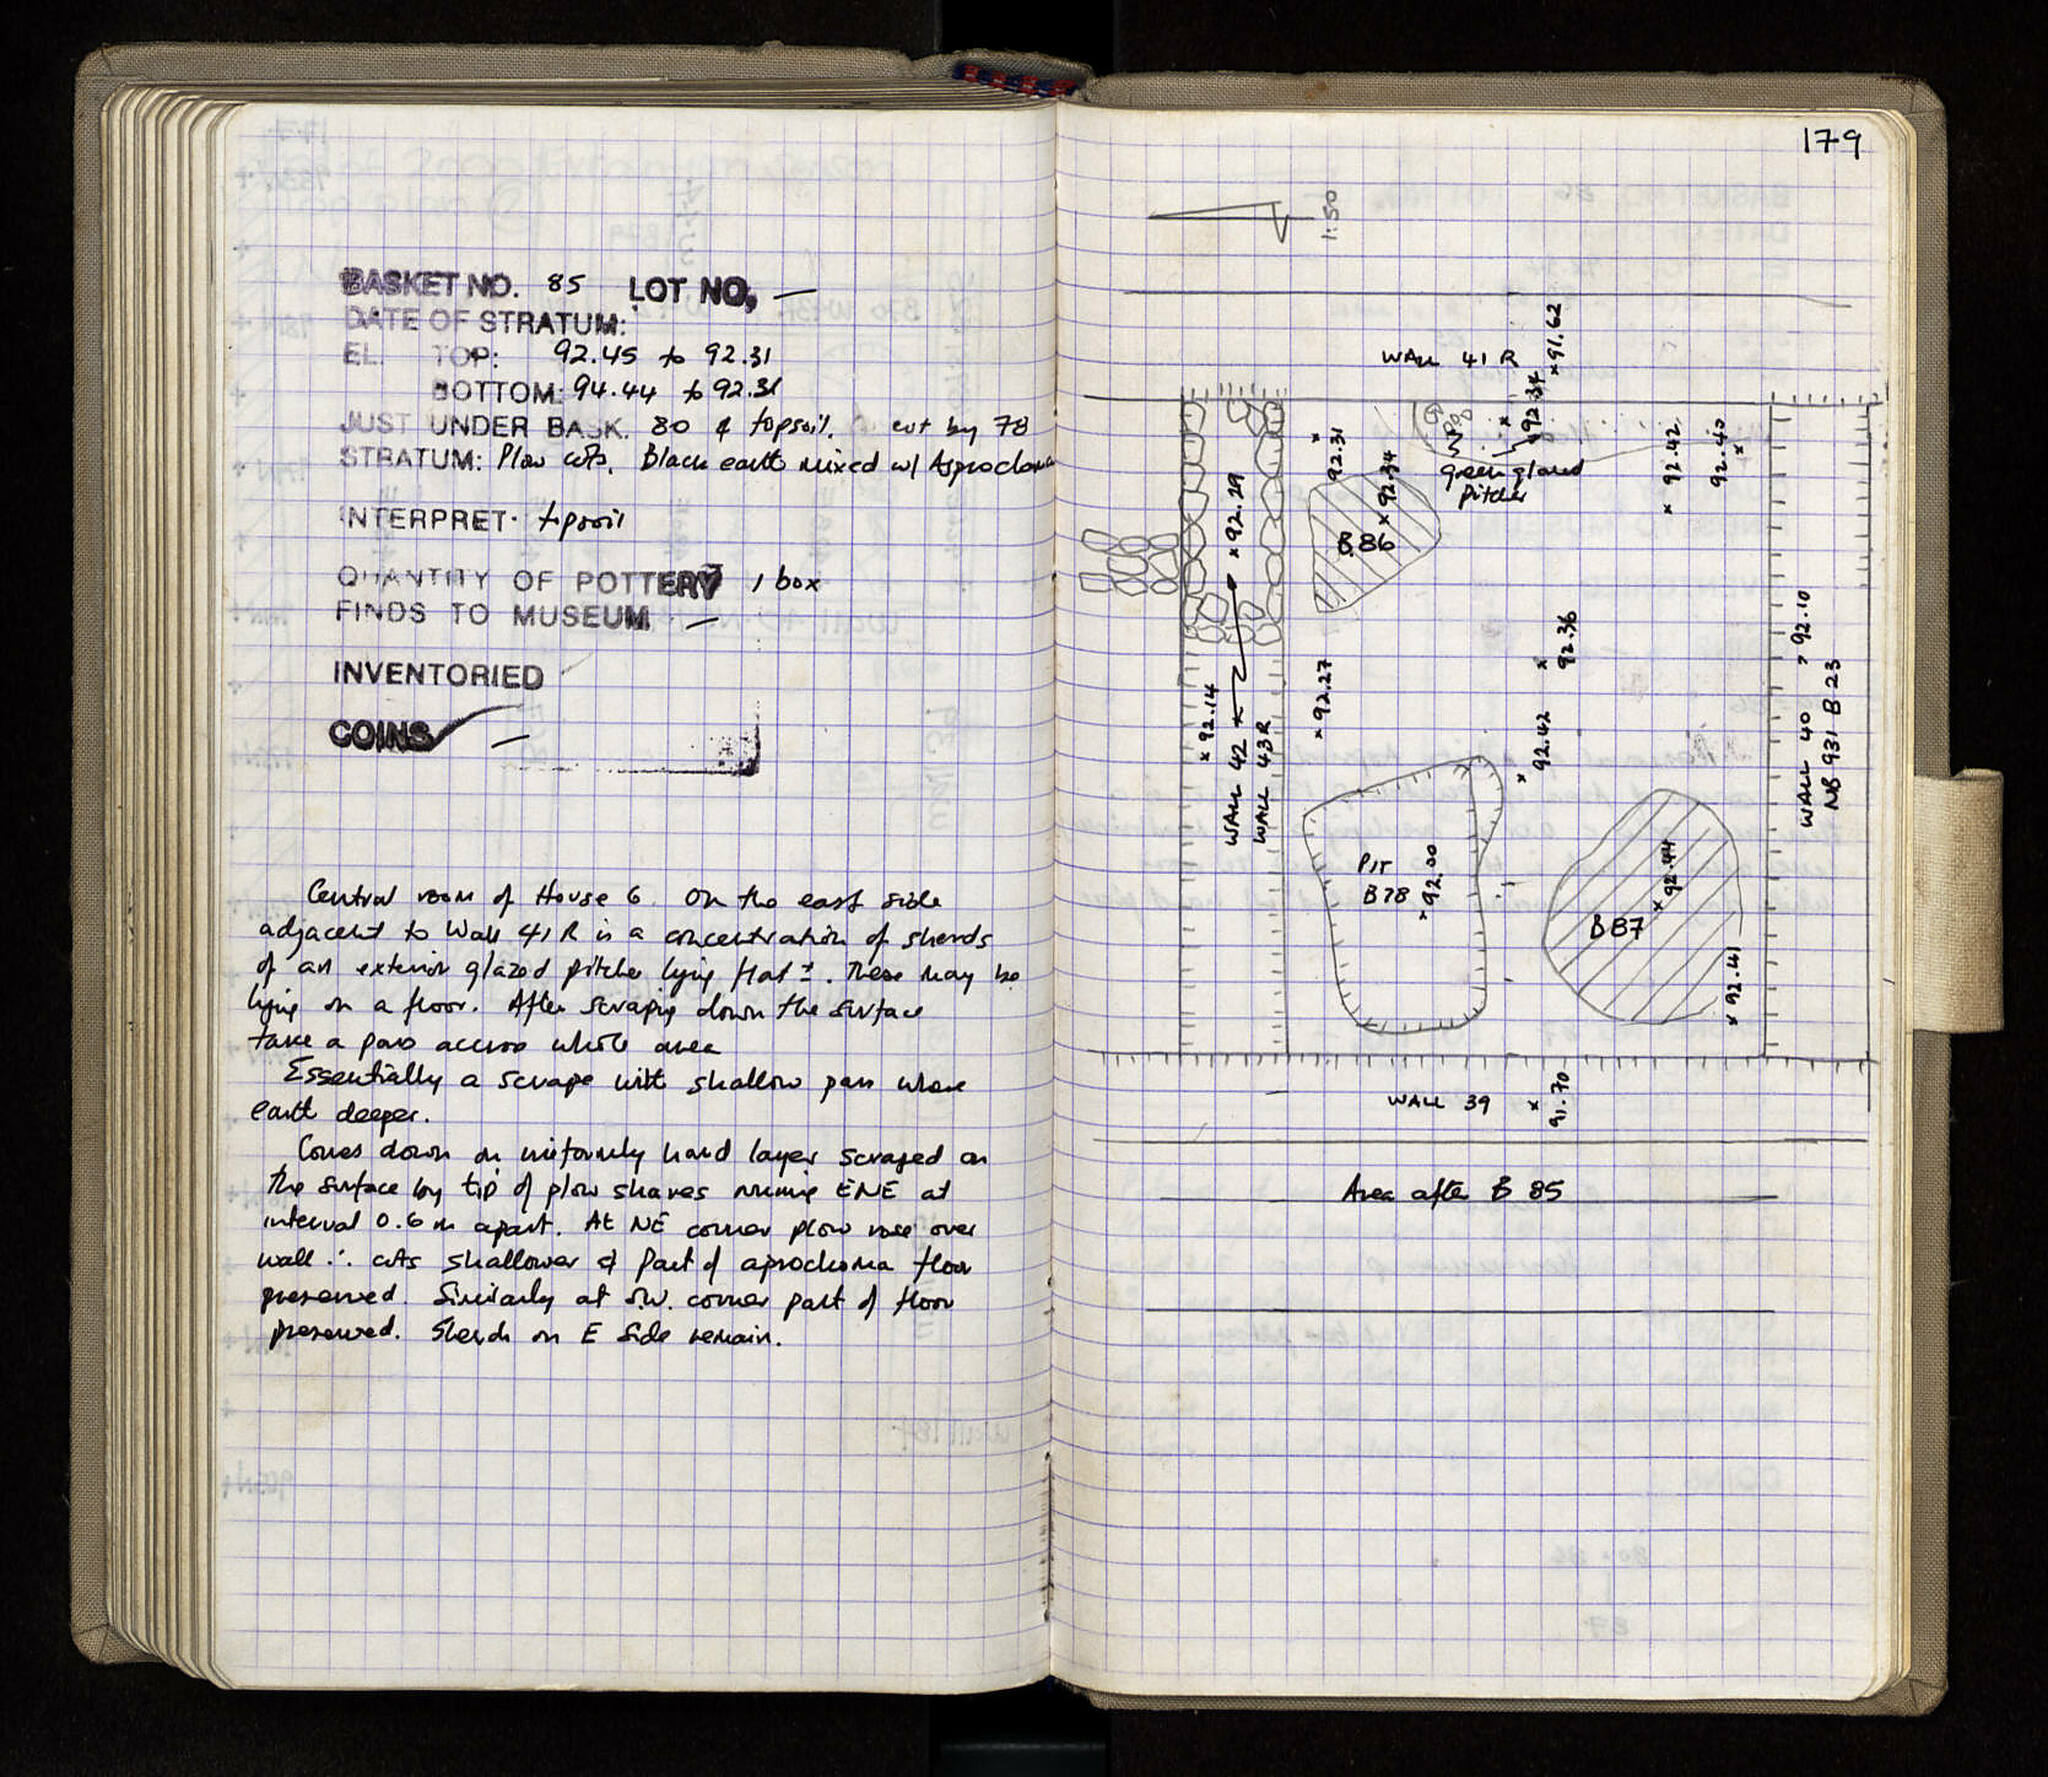 BASKET NO. 85 LOT NO, —
DATE OF STRATUM:
EL. TOP: 92.45 to 92.31
BOTTOM: 94.44 to 92.31
JUST UNDER BASK. 80 & topsoil. cut by 78
STRATUM: Plow cuts. Black earth mixed w/ Asprochoma
INTERPRET. topsoil
QUANTITY OF POTTERY 1 box
FINDS TO MUSEUM —
INVENTORIED
COINS —
Central room of House 6. On the east side
adjacent to Wall 41 R is a concentration of sherds
of an exterior glazed pitcher lying flat ±. These may be
lying on a floor. After scraping down the surface
take a pass across whole area
Essentially a scrape with shallow pass where
earth deeper.
Comes down on uniformly hard layer scraped on
the surface by tip of plow shares running ENE at
interval 0.6 m apart. At NE corner plow rose over
wall ∴ cuts shallower & part of aprochoma floor
preserved. Similarly at S.W. corner part of floor
preserved. Sherds on E side remain.
179
1:50
WALL 41 R
x 91.62
x 92.34
x 92.31
x 92.34
green glazed
pitcher
x 92.42
92.40 x
x 92.29
B.86
92.10
x 92.36
x 92.27
x 92.14
WALL 42
WALL 43 R
x 92.42
WALL 40
NB 931 B 23
PIT
B78
x 92.00
x 92.44
B87
x 92.41
WALL 39
x 91.70
Area after B 85